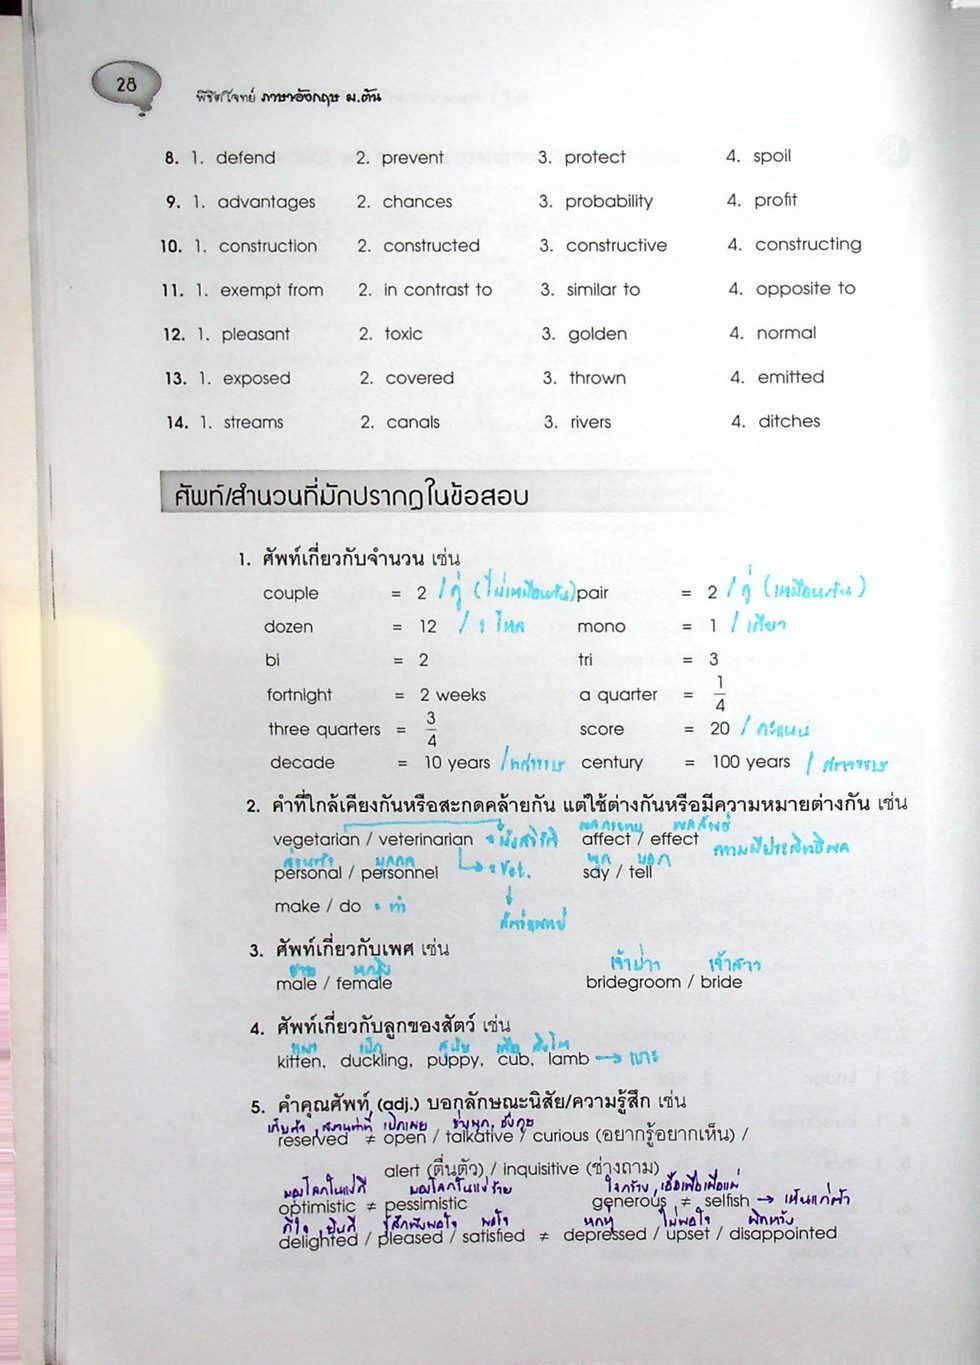 28
พิชิตโจทย์ ภาษาอังกฤษ ม.ต้น
8. 1. defend 2. prevent 3. protect 4. spoil
9. 1. advantages 2. chances 3. probability 4. profit
10. 1. construction 2. constructed 3. constructive 4. constructing
11. 1. exempt from 2. in contrast to 3. similar to 4. opposite to
12. 1. pleasant 2. toxic 3. golden 4. normal
13. 1. exposed 2. covered 3. thrown 4. emitted
14. 1. streams 2. canals 3. rivers 4. ditches
ศัพท์/สำนวนที่มักปรากฏในข้อสอบ
1. ศัพท์เกี่ยวกับจำนวน เช่น
couple = 2 / คู่ (ไม่เหมือนกัน) pair = 2 / คู่ (เหมือนกัน)
dozen = 12 / 1 โหล mono = 1 / เดียว
bi = 2 tri = 3
fortnight = 2 weeks a quarter = 1/4
three quarters = 3/4 score = 20 / คะแนน
decade = 10 years / ทศวรรษ century = 100 years / ศตวรรษ
2. คำที่ใกล้เคียงกันหรือสะกดคล้ายกัน แต่ใช้ต่างกันหรือมีความหมายต่างกัน เช่น
ผลกระทบ ผลลัพธ์
vegetarian / veterinarian มังสวิรัติ affect / effect ความมีประสิทธิผล
ส่วนตัว บุคคล พูด บอก
personal / personnel say / tell
make / do ทำ สัตวแพทย์
3. ศัพท์เกี่ยวกับเพศ เช่น
ชาย หญิง เจ้าบ่าว เจ้าสาว
male / female bridegroom / bride
4. ศัพท์เกี่ยวกับลูกของสัตว์ เช่น
แมว เป็ด สุนัข เสือ สิงโต
kitten, duckling, puppy, cub, lamb → แกะ
5. คำคุณศัพท์ (adj.) บอกลักษณะนิสัย/ความรู้สึก เช่น
เก็บตัว, สงวนท่าที เปิดเผย ช่างพูด, ช่างคุย
reserved ≠ open / talkative / curious (อยากรู้อยากเห็น) /
alert (ตื่นตัว) / inquisitive (ช่างถาม)
มองโลกในแง่ดี มองโลกในแง่ร้าย ใจกว้าง, เอื้อเฟื้อเผื่อแผ่
optimistic ≠ pessimistic generous ≠ selfish → เห็นแก่ตัว
ดีใจ, ยินดี รู้สึกพึงพอใจ พอใจ หดหู่ ไม่พอใจ ผิดหวัง
delighted / pleased / satisfied ≠ depressed / upset / disappointed